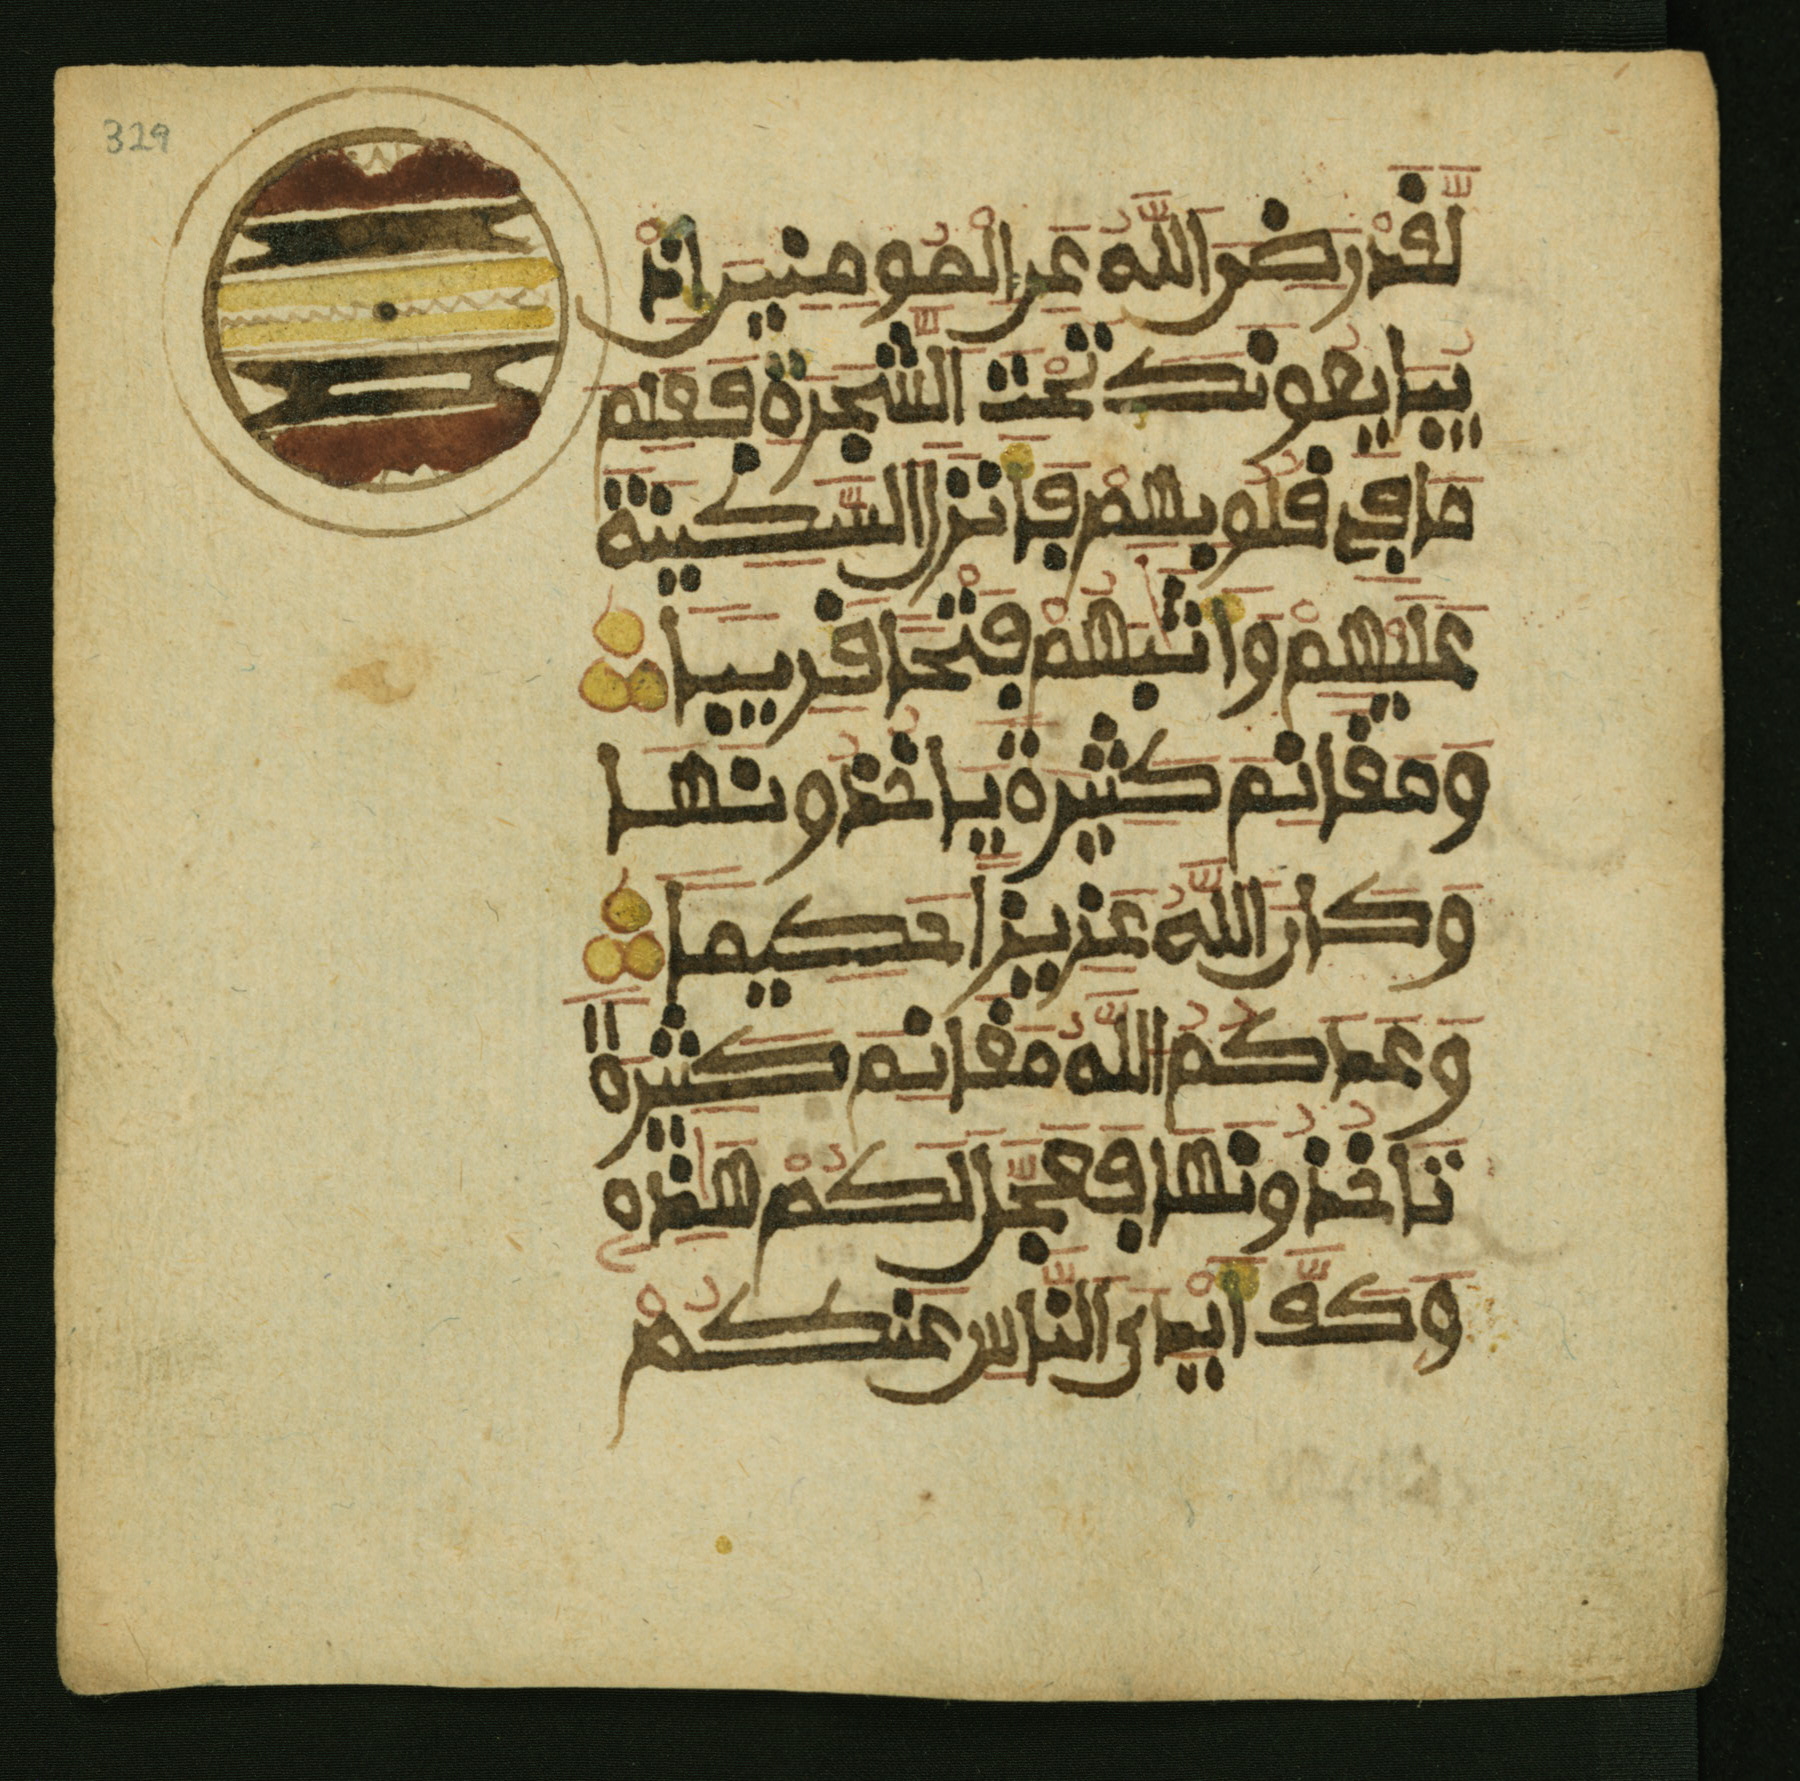 329
لقد رضي الله عن المومنين اذ
يبايعونك تحت الشجرة فعلم
ما في قلوبهم فانزل السكينة
عليهم واثبهم فتحا قريبا
ومغانم كثيرة ياخذونها
وكان الله عزيزا حكيما
وعدكم الله مغانم كثيرة
تاخذونها فعجل لكم هذه
وكف ايدي الناس عنكم